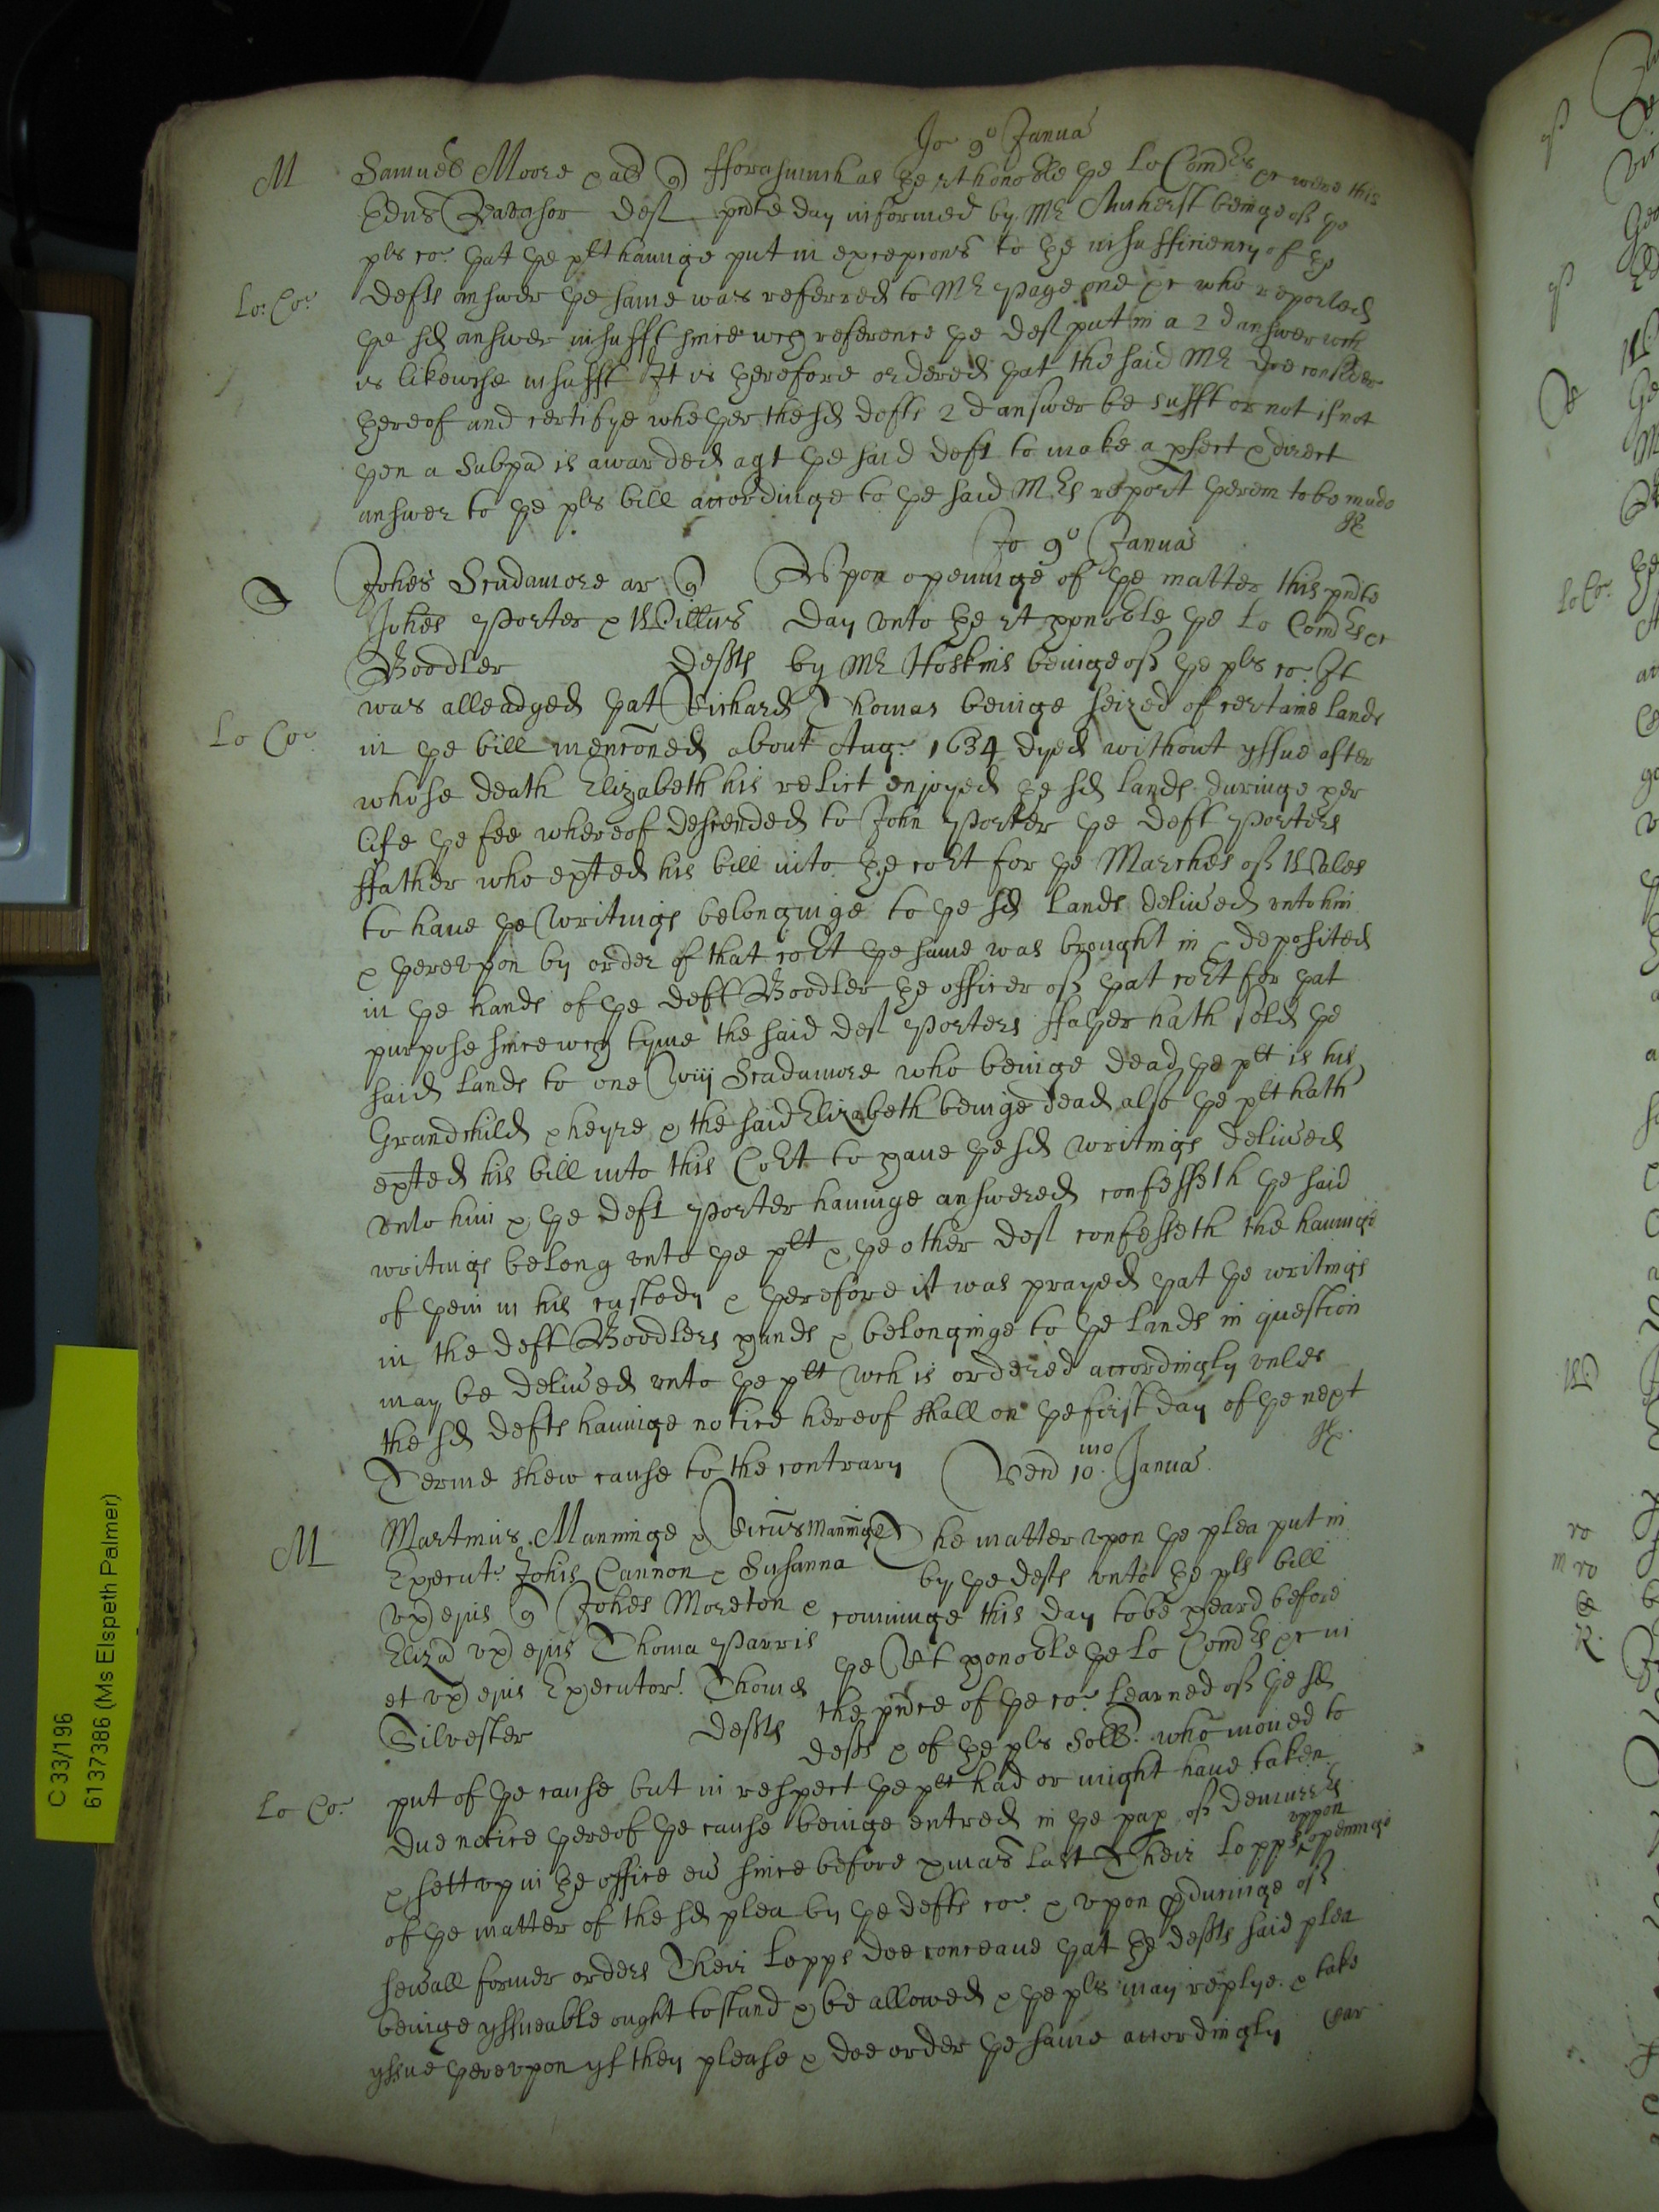 Jo 9o Janua
M Samuel Moore & al q fforasmuch as the rt honoble the Lo Comrs &c were this
Zavaghor Deft pnte day informed by Mr Amherst beinge of the
pls co: that the plt havinge put in excepcons to the insufficiency of the
Lo: Co: Defts answer the same was referred to Mr Page one &c who reported
the sd answer insufft since wch reference the Deft put in a 2d answer wch
is likewise insufft It is therefore ordered that the said Mr doe consider
thereof and certifye whether the sd defts 2d answer be sufft or not if not
then a Subpa is awarded agt the said deft to make a pfect & direct
answer to the pls bill accordinge to the said Mrs report therein to be made
Jo 9o Janua
S Johes Scudamore ar q Vpon openinge of the matter this pnte
Johes Porter & Willus day vnto the rt honoble the Lo Comrs &c
Boodler Defts by Mr Hoskins beinge of the pls co: It
was alleadged that Richard Thomas beinge seized of certaine lands
Lo Co: in the bill menconed about Aug: 1634 dyed without yssue after
whose death Elizabeth his relict enjoyed the sd lands duringe her
life the fee whereof descended to John Porter the deft Porters
ffather who exted his bill into the cort for the Marches of Wales
to have the writings belonginge to the sd lands delived vnto him
& therevpon by order of that cort the same was brought in & deposited
in the hands of the deft Boodler the officer of that cort for that
purpose since wch tyme the said deft Porters ffather hath sold the
said lands to one Scudamore who beinge dead the plt is his
Grandchild & heyre & the said Elizabeth beinge dead also the plt hath
exted his bill into this Cort to have the sd writings delived
vnto him & the deft Porter havinge answered confesseth the said
writings belong vnto the plt & the other deft confesseth the havinge
of them in his custody & therefore it was prayed that the writings
in the deft Boodlers hands & belonginge to the lands in question
may be delived vnto the plt wch is ordered accordingly vnles
the sd defts havinge notice hereof shall on the first day of the next
Terme shew cause to the contrary Ven 10mo Janua
M Martinus Manninge & Ricus Manninge The matter vpon the plea put in
Execut: Johis Cannon & Susanna by the defts vnto the pls bill
vx ejus q Johes Moreton & comminge this day to be heard before
Eliza vx ejus Thoma Parris the Rt honoble the Lo Comrs &c in
et vx ejus Executor: Thomas the pnce of the co: learned of the sd
Silvester Defts defts & of the pls Sollr. who moved to
Lo Co: put of the cause but in respect the plt had or might have taken
due notice thereof the cause beinge entred in the pap of demurrs
& sett vp in the office ev since before xmas last Their Lopps vppon openinge
of the matter of the sd plea by the defts co: & vpon pducinge of
sevall former orders Their Lopps doe conceave that the defts said plea
beinge yssueable ought to stand & be allowed & the pls may replye & take
yssue therevpon yf they please & doe order the same accordingly
C 33/196
6137386 (Ms Elspeth Palmer)